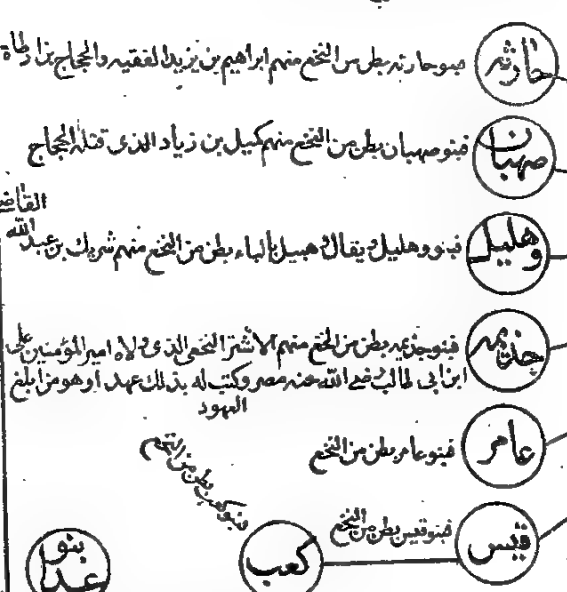 حارثة
فبنو حارثه بطن من النخع منهم ابراهيم بن يزيد الفقيه والحجاج بن ارطاة
صهبان
فبنو صهبان بطن من النخع منهم كميل بن زياد الذى قتله الحجاج
وهليل
فبنو وهليل ويقال وهبيل بالباء بطن من النخع منهم شريك بن عبد الله
القاضى
جذيمه
فبنو جذيمه بطن من النخع منهم الاشتر النخعى الذى ولاه امير المؤمنين على
ابن ابى طالب رضى الله عنه مصر وكتب له بذلك عهدا وهو من ابلغ
العهود
عامر
فبنو عامر بطن من النخع
قيس
فبنو قيس بطن من النخع
كعب
فبنو كعب بطن من النخع
بنو
عدا